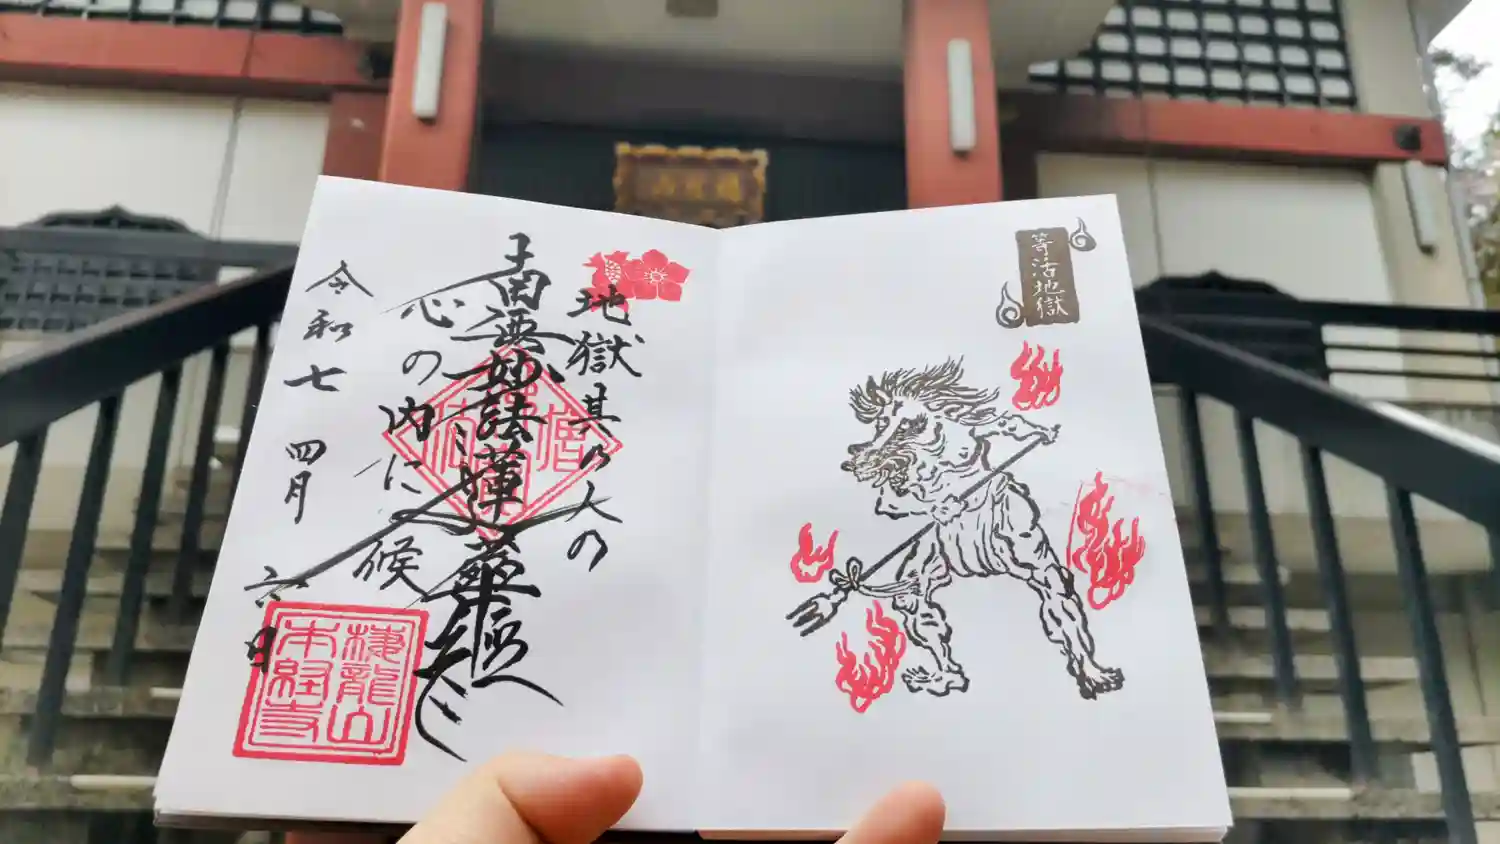 等活地獄
地獄其の人の
南無妙法蓮華経
心の内に候
令和七 四月 六日
龍山
本経寺